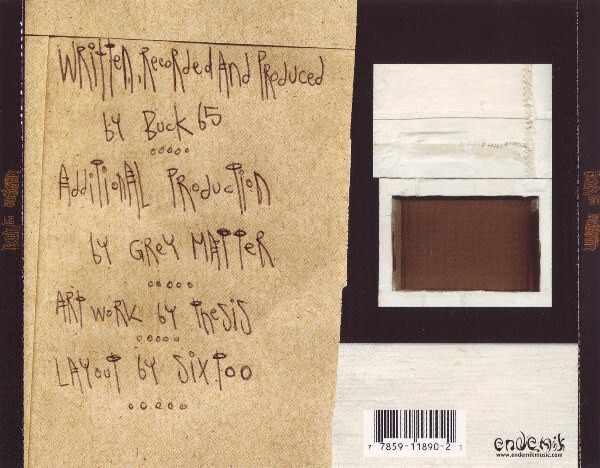 Written, Recorded And Produced
by Buck 65
Additional Production
by Grey Matter
Art work by Thesis
Layout by Sixtoo
7 7859-11890-2 1
endemik
www.endemikmusic.com